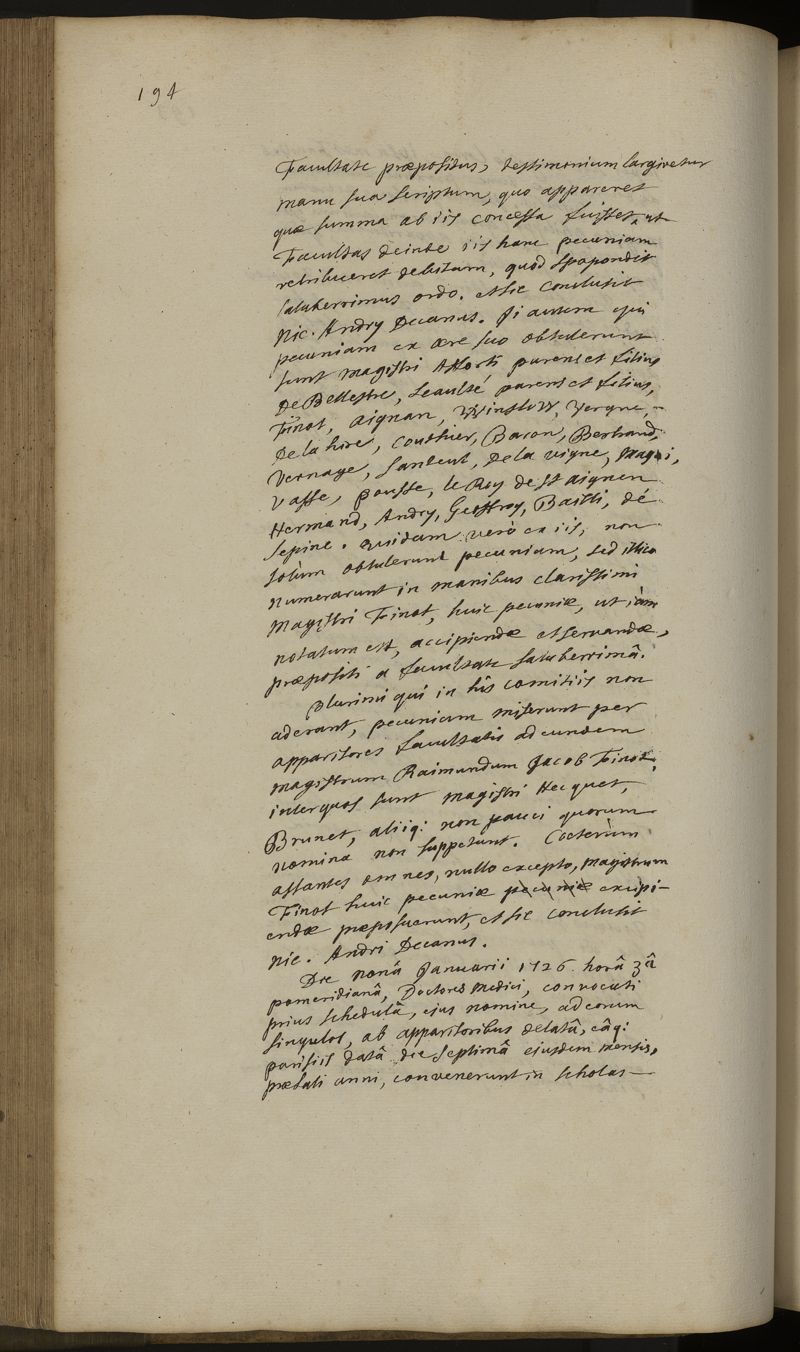 194
Facultate præpositus, testimonium largiretur
manu sua scriptum, quo appareret
quæ summa ab iis concessa fuisset, ut
Facultas deinde iis hanc pecuniam
retribueret debitam, quod spopondit
saluberrimus ordo. et sic conclusit
Nic. Andry Decanus. Ji autem qui
pecuniam ex ære suo obtulerunt
sunt magistri Afforti parens et filius
De Bellestre, Leaulté parens et filius,
Finot, Aignan, Winslow, Vergne,
De la hire, Couthier, Baron, Bertrand,
Vernage, Santeul, De la vigne, Magni,
Vasse, pousse, le Roy de st aignen
Hermand, Andry, Geoffroy, Bailli, dé
lepine. quidam vero ex iis, non
solùm obtulerunt pecuniam, sed illico
numerarunt in manibus clarissimi
Magistri Finot, huic pecuniæ, ut iàm
notatum est, accipiendæ et servandæ,
præpositi a facultate saluberrimâ.
plurimi qui in his comitiis non
aderant, pecuniam miserunt per
apparitores facultatis ad eundem
magistrum Raimundum Jacob Finot,
inter quos sunt magistri Hecquet,
Brunet, aliiq: non pauci quorum
nomina non suppetunt. Cœterùm
astantes omnes, nullo excepto, magistrum
Finot huic pecuniæ pecuniæ excipi-
endæ præposuerunt, et sic conclusit
Nic. Andri Decanus.
Die nonâ Januarii 1726 horâ 3â
pomeridianâ, Doctores Medici, convocati
prius schedulâ, ejus nomine, ad eorum
singulos, ab apparitoribus delatâ, eâq:
parisiis datâ die septimâ ejusdem mensis,
præfati anni, convenerunt in scholas